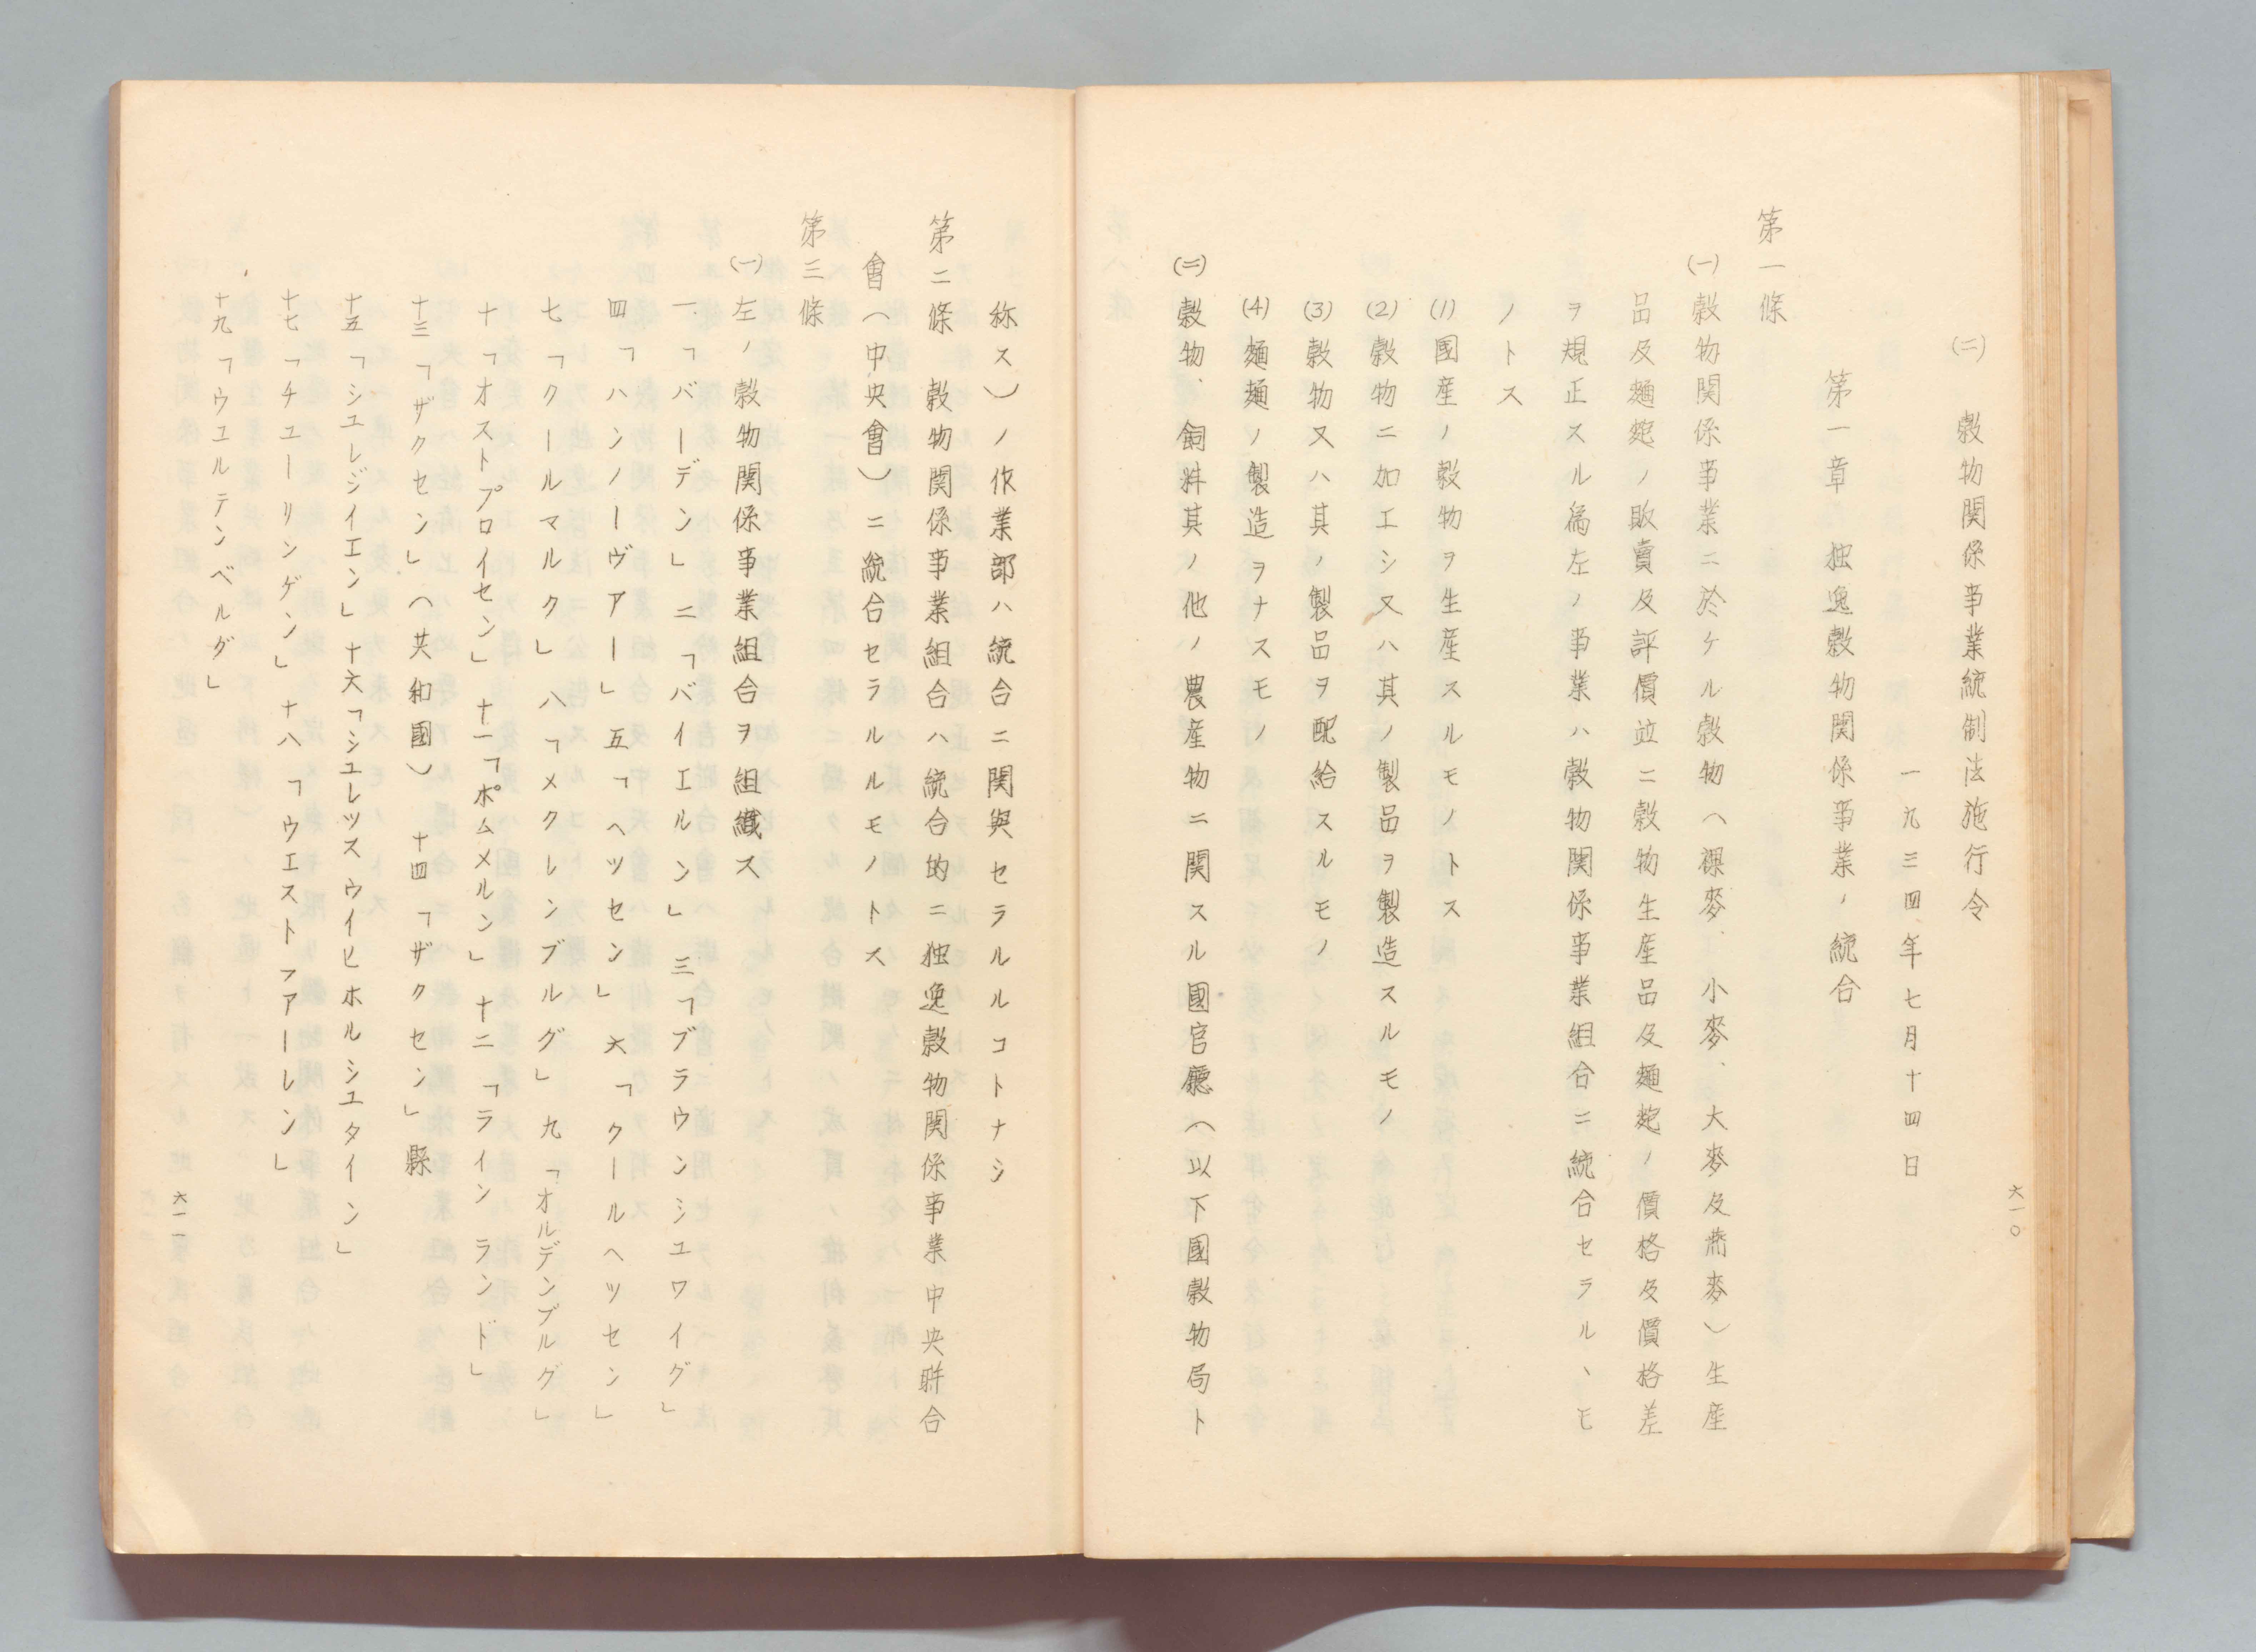 (二)　穀物関係事業統制法施行令
一九三四年七月十四日
第一章　独逸穀物関係事業ノ統合
第一條
(一)穀物関係事業ニ於ケル穀物(裸麥、小麥、大麥及燕麥)生産
品及麺麭ノ敗賣及評價竝ニ穀物生産品及麺麭ノ價格及價格差
ヲ規正スル為左ノ事業ハ穀物関係事業組合ニ統合セラルヽモ
ノトス
(1)國産ノ穀物ヲ生産スルモノトス
(2)穀物ニ加工シ又ハ其ノ製品ヲ製造スルモノ
(3)穀物又ハ其ノ製品ヲ配給スルモノ
(4)麺麺ノ製造ヲナスモノ
(二)穀物、飼料其ノ他ノ農産物ニ関スル國官廳(以下國穀物局ト
六一〇
称ス)ノ作業部ハ統合ニ関與セラルルコトナシ
第二條　穀物関係事業組合ハ統合的ニ独逸穀物関係事業中央聨合
會(中央會)ニ統合セラルルモノトス
第三條
(一)左ノ穀物関係事業組合ヲ組織ス
一、「バーデン」二「バイエルン」三「ブラウンシユワイグ」
四「ハンノーヴアー」五「ヘツセン」六「クールヘツセン」
七「クールマルク」八「メクレンブルグ」九「オルデンブルグ」
十「オストプロイセン」十一「ポムメルン」十二「ラインランド」
十三「ザクセン」(共和國)　十四「ザクセン」縣
十五「シユレジイエン」十六「シユレツスウイヒホルシユタイン」
十七「チユーリンゲン」十八「ウエストフアーレン」
十九「ウユルテンベルグ」
六一一